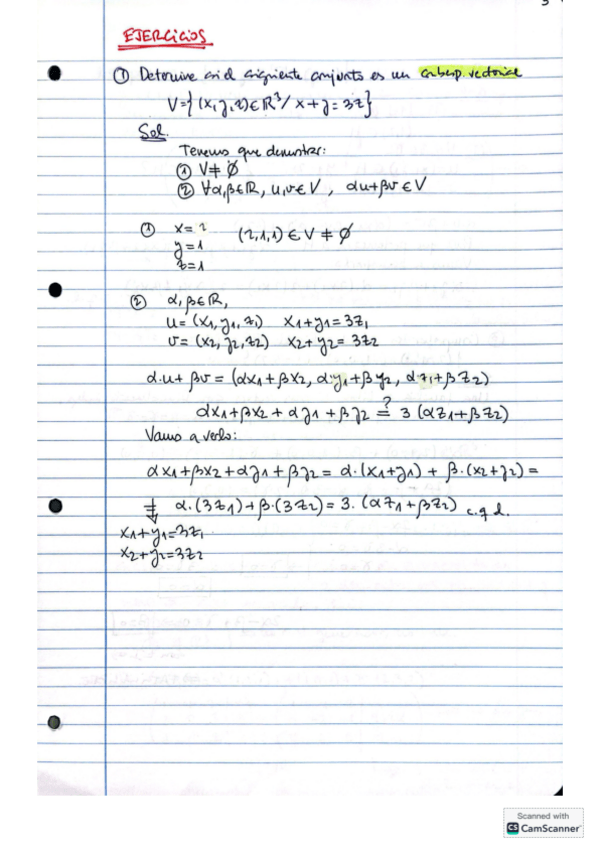 EJERCICIOS
① Determine si el siguiente conjunto es un subesp. vectorial
V={(x,y,z)∈R³/ x+y=3z}
Sol.
Tenemos que demostrar:
① V≠∅
② ∀α,β∈R, u,v∈V, αu+βv∈V
① x=2
y=1
z=1
(2,1,1)∈V≠∅
② α,β∈R,
u=(x1,y1,z1) x1+y1=3z1
v=(x2,y2,z2) x2+y2=3z2
α.u+βv=(αx1+βx2, αy1+βy2, αz1+βz2)
αx1+βx2+αy1+βy2 =? 3(αz1+βz2)
Vamos a verlo:
αx1+βx2+αy1+βy2=α.(x1+y1)+β.(x2+y2)=
= α.(3z1)+β.(3z2)=3.(αz1+βz2) c.q.d.
x1+y1=3z1
x2+y2=3z2
Scanned with
CS CamScanner